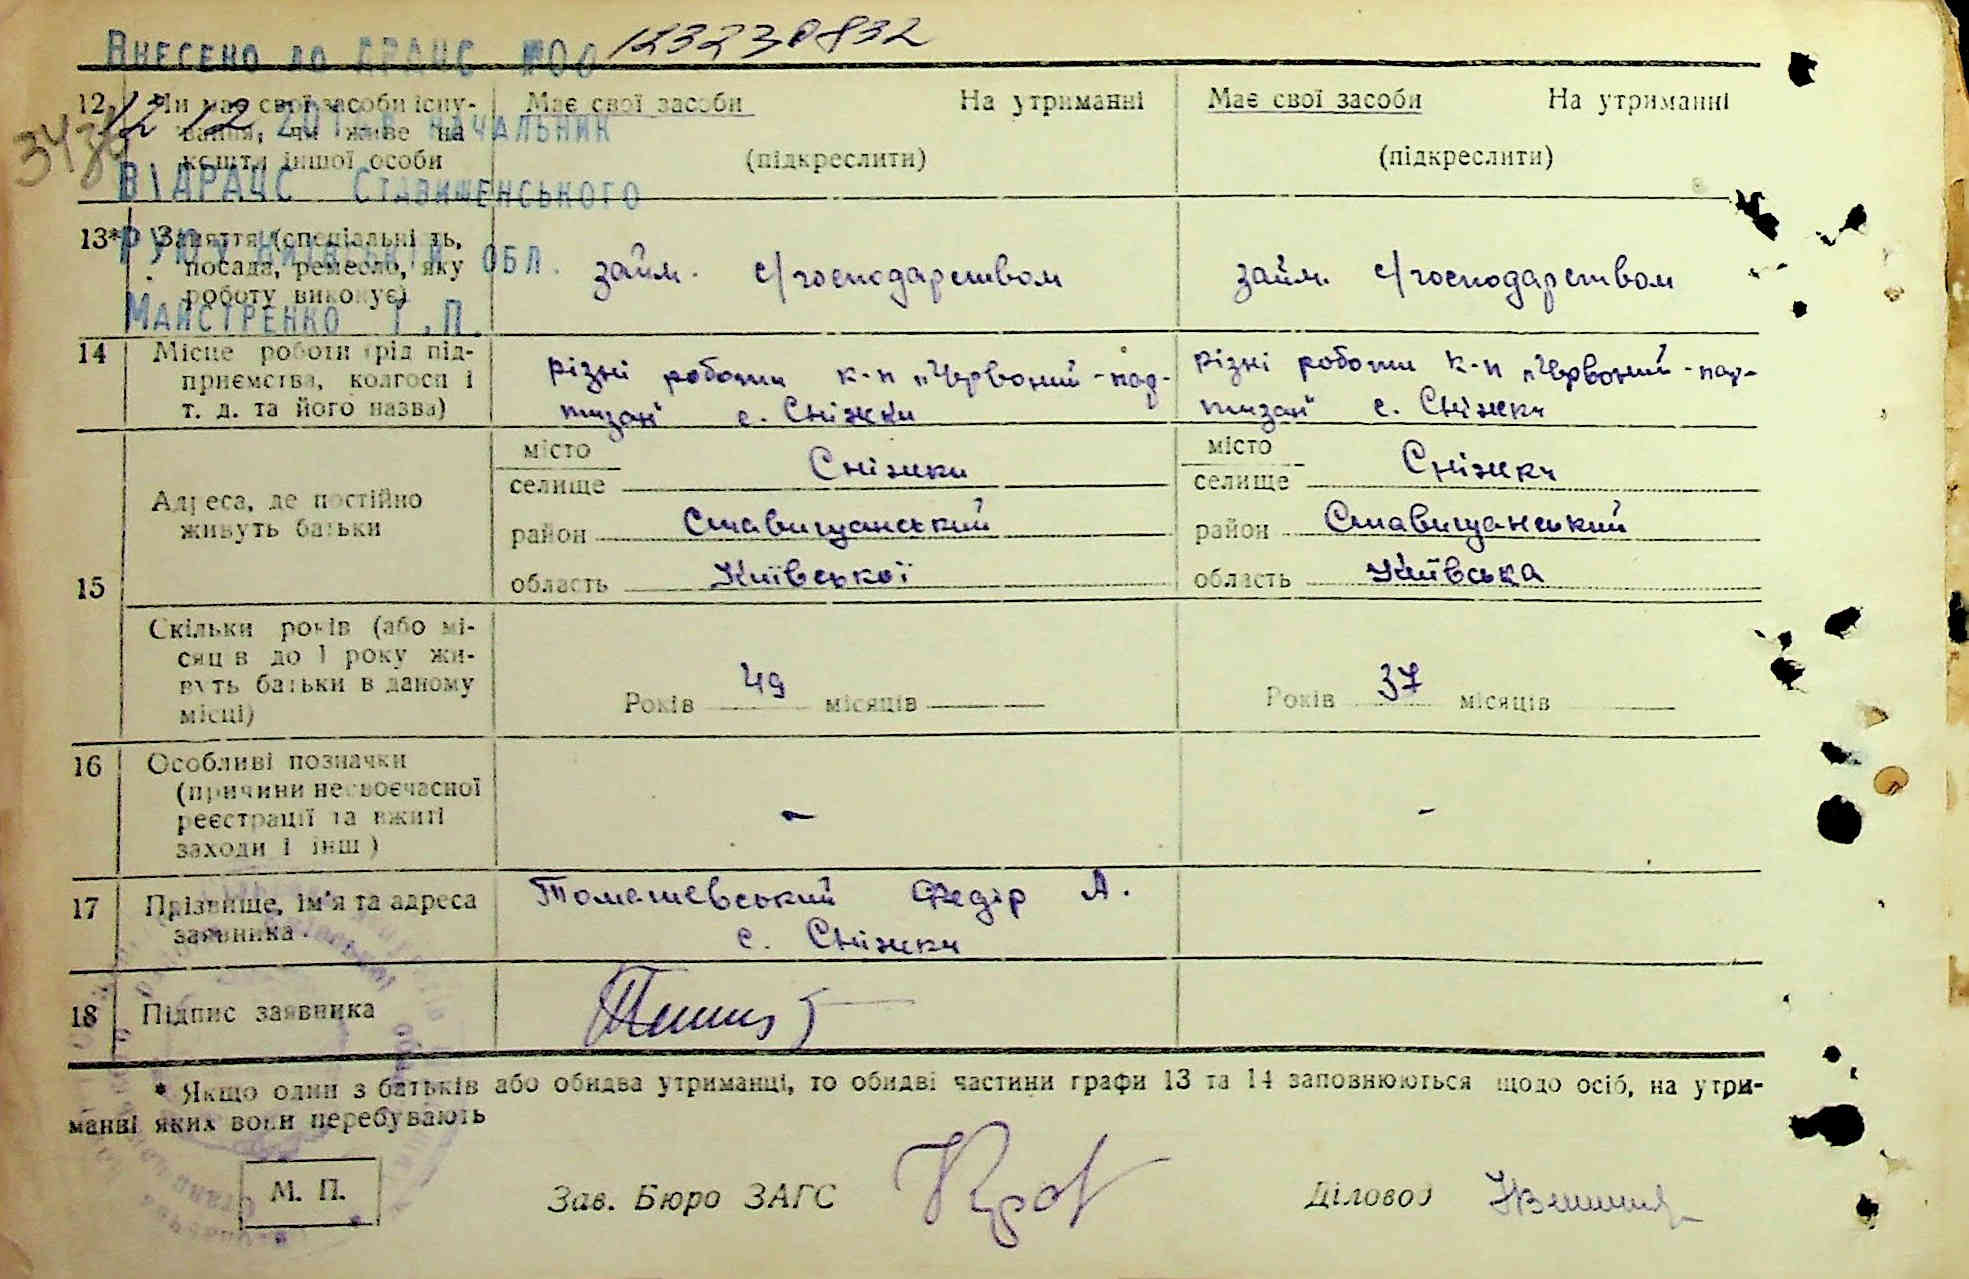 Внесено до ДРАЦС №00 123230832
12 Чи має свої засоби існу- Має свої засоби На утриманні Має свої засоби На утриманні
вання, чи живе на (підкреслити) (підкреслити)
кошти іншої особи
12 12 201 начальник
ВДРАЦС Ставищенського
РУЮ у Київській обл.
Майстренко І.П.
13* Заняття (спеціальність, займ. с/господарством займ. с/господарством
посада, ремесло, яку
роботу виконує)
14 Місце роботи (рід під- різні роботи к-п „Червоний-пар- різні роботи к-п „Червоний-пар-
приємства, колгосп і тизан" с. Сніжки тизан" с. Сніжки
т. д. та його назва)
15 Адреса, де постійно
живуть батьки
місто Сніжки місто Сніжки
селище селище
район Ставищанський район Ставищанський
область Київської область Київська
Скільки років (або мі-
сяців до 1 року жи-
вуть батьки в даному
місці)
Років 49 місяців Років 37 місяців
16 Особливі позначки
(причини несвоєчасної
реєстрації та вжиті - -
заходи і інш)
17 Прізвище, ім'я та адреса Томашевський Федір А.
заявника с. Сніжки
18 Підпис заявника
* Якщо один з батьків або обидва утриманці, то обидві частини графи 13 та 14 заповнюються щодо осіб, на утри-
манні яких вони перебувають
М. П. Зав. Бюро ЗАГС Діловод